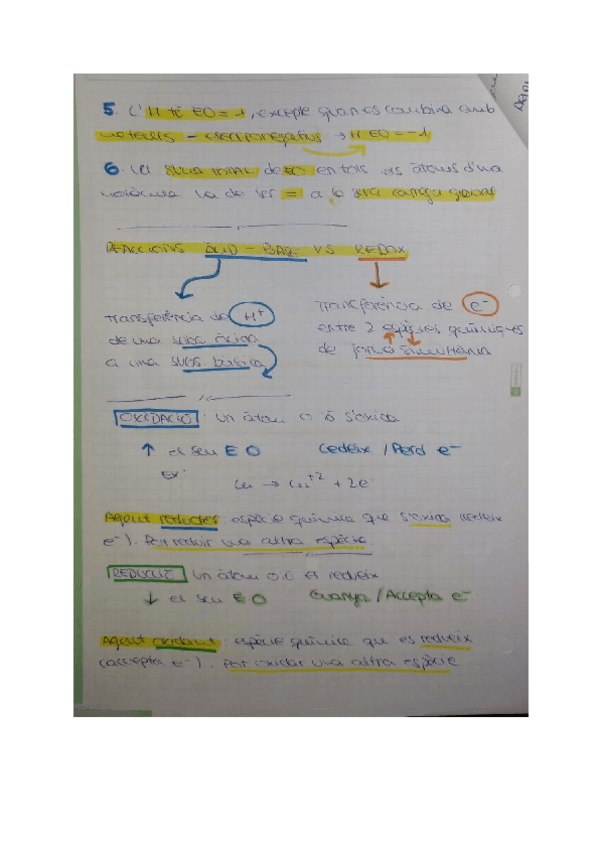 5. L'H té EO = +1, excepte quan es combina amb
metalls - electronegatius → H EO = -1
6. La suma total de en tots els àtoms d'una
molècula ha de ser = a la seva càrrega global
REACCIONS ÀCID - BASE VS REDOX
Transferència de H+
de una subs àcida
a una subs bàsica
Transferència de e-
entre 2 espècies químiques
de forma simultània
OXIDACIÓ: un àtom o ió s'oxida
↑ el seu EO Cedeix / Perd e-
Ex:
Cu → Cu+2 + 2e-
Agent reductor: espècie química que s'oxida (cedeix
e-). Pot reduir una altra espècie
REDUCCIÓ un àtom o ió es redueix
↓ el seu EO Guanya / Accepta e-
Agent oxidant: espècie química que es redueix
(accepta e-). Pot oxidar una altra espècie